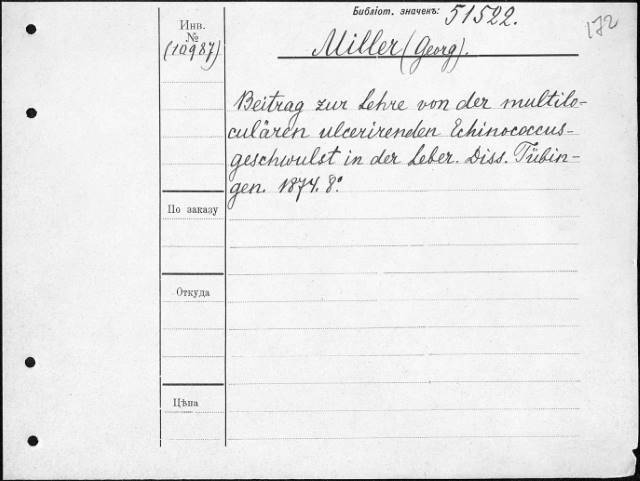 Библіот. значекъ: 51522.
172
Инв.
№
(10987)
Miller (Georg).
Beitrag zur Lehre von der multilo-
culären ulcerirenden Echinococcus-
geschwulst in der Leber. Diss. Tübin-
gen. 1874. 8°.
По заказу
Откуда
Цѣна